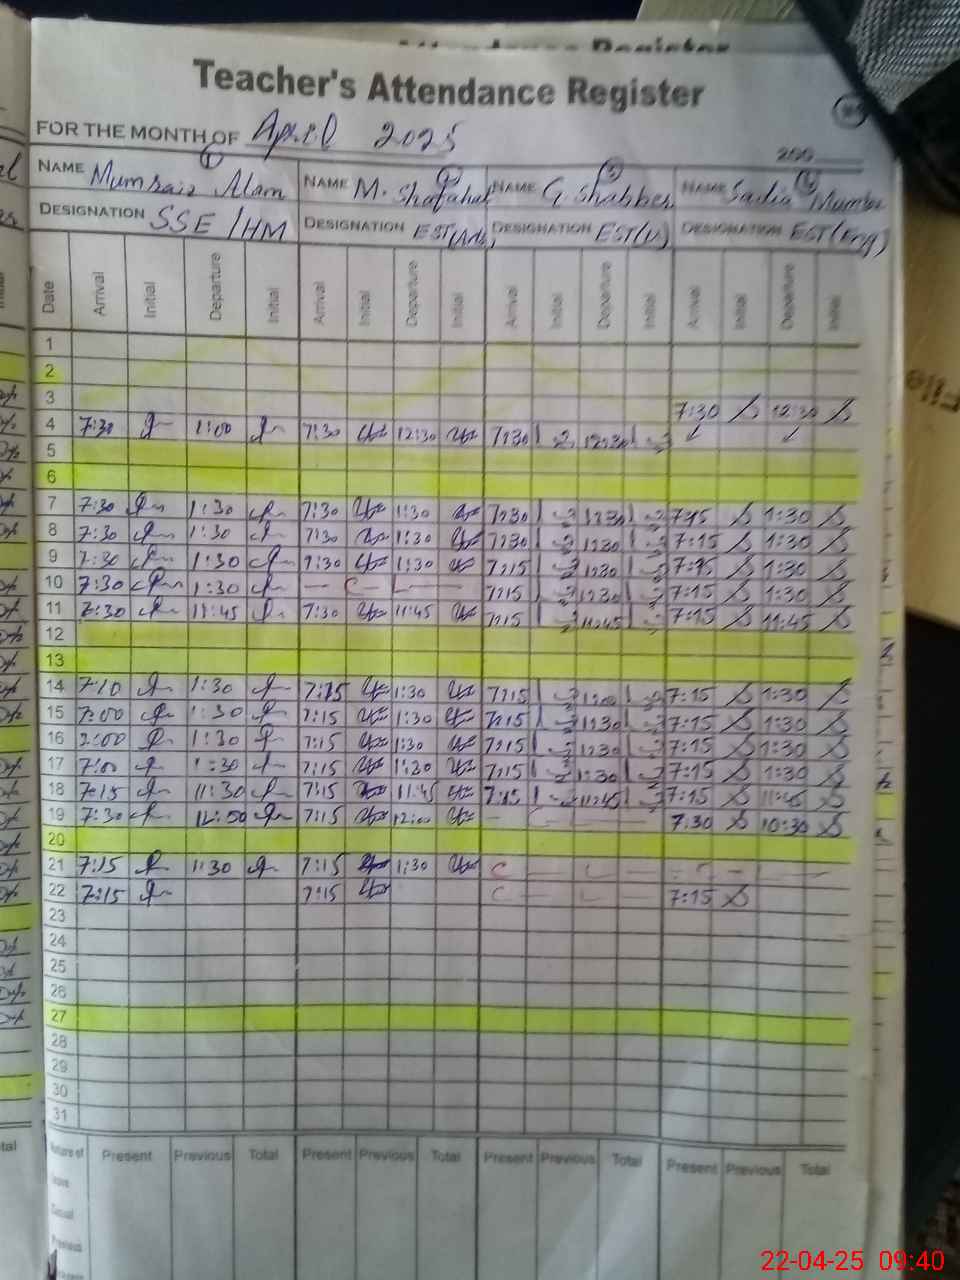 Teacher's Attendance Register
FOR THE MONTH OF April 2025
200
NAME Mumraiz Alam NAME M. Shafahat NAME G. Shabber NAME Sadia Mumtaz
DESIGNATION SSE/HM DESIGNATION EST DESIGNATION EST DESIGNATION EST(Eng)
Date Arrival Initial Departure Initial Arrival Initial Departure Initial Arrival Initial Departure Initial Arrival Initial Departure Initial
1
2
3
4 7:30 1:00 7:30 12:30 7:30 12:30 7:30 12:30
5
6
7 7:30 1:30 7:30 1:30 7:30 1:30 7:15 1:30
8 7:30 1:30 7:30 1:30 7:30 1:30 7:15 1:30
9 7:30 1:30 7:30 1:30 7:15 1:30 7:15 1:30
10 7:30 1:30 — C — L — 7:15 1:30 7:15 1:30
11 7:30 11:45 7:30 11:45 7:15 11:45 7:15 11:45
12
13
14 7:10 1:30 7:15 1:30 7:15 7:15 1:30
15 7:00 1:30 7:15 1:30 7:15 1:30 7:15 1:30
16 7:00 1:30 7:15 1:30 7:15 1:30 7:15 1:30
17 7:00 1:30 7:15 1:30 7:15 1:30 7:15 1:30
18 7:15 11:30 7:15 11:45 7:15 11:45 7:15 11:45
19 7:30 12:00 7:15 12:00 — C — L — 7:30 10:30
20
21 7:15 1:30 7:15 1:30 C — L — — C — L —
22 7:15 7:15 C — L — 7:15
23
24
25
26
27
28
29
30
31
Present Previous Total Present Previous Total Present Previous Total Present Previous Total
File
22-04-25 09:40